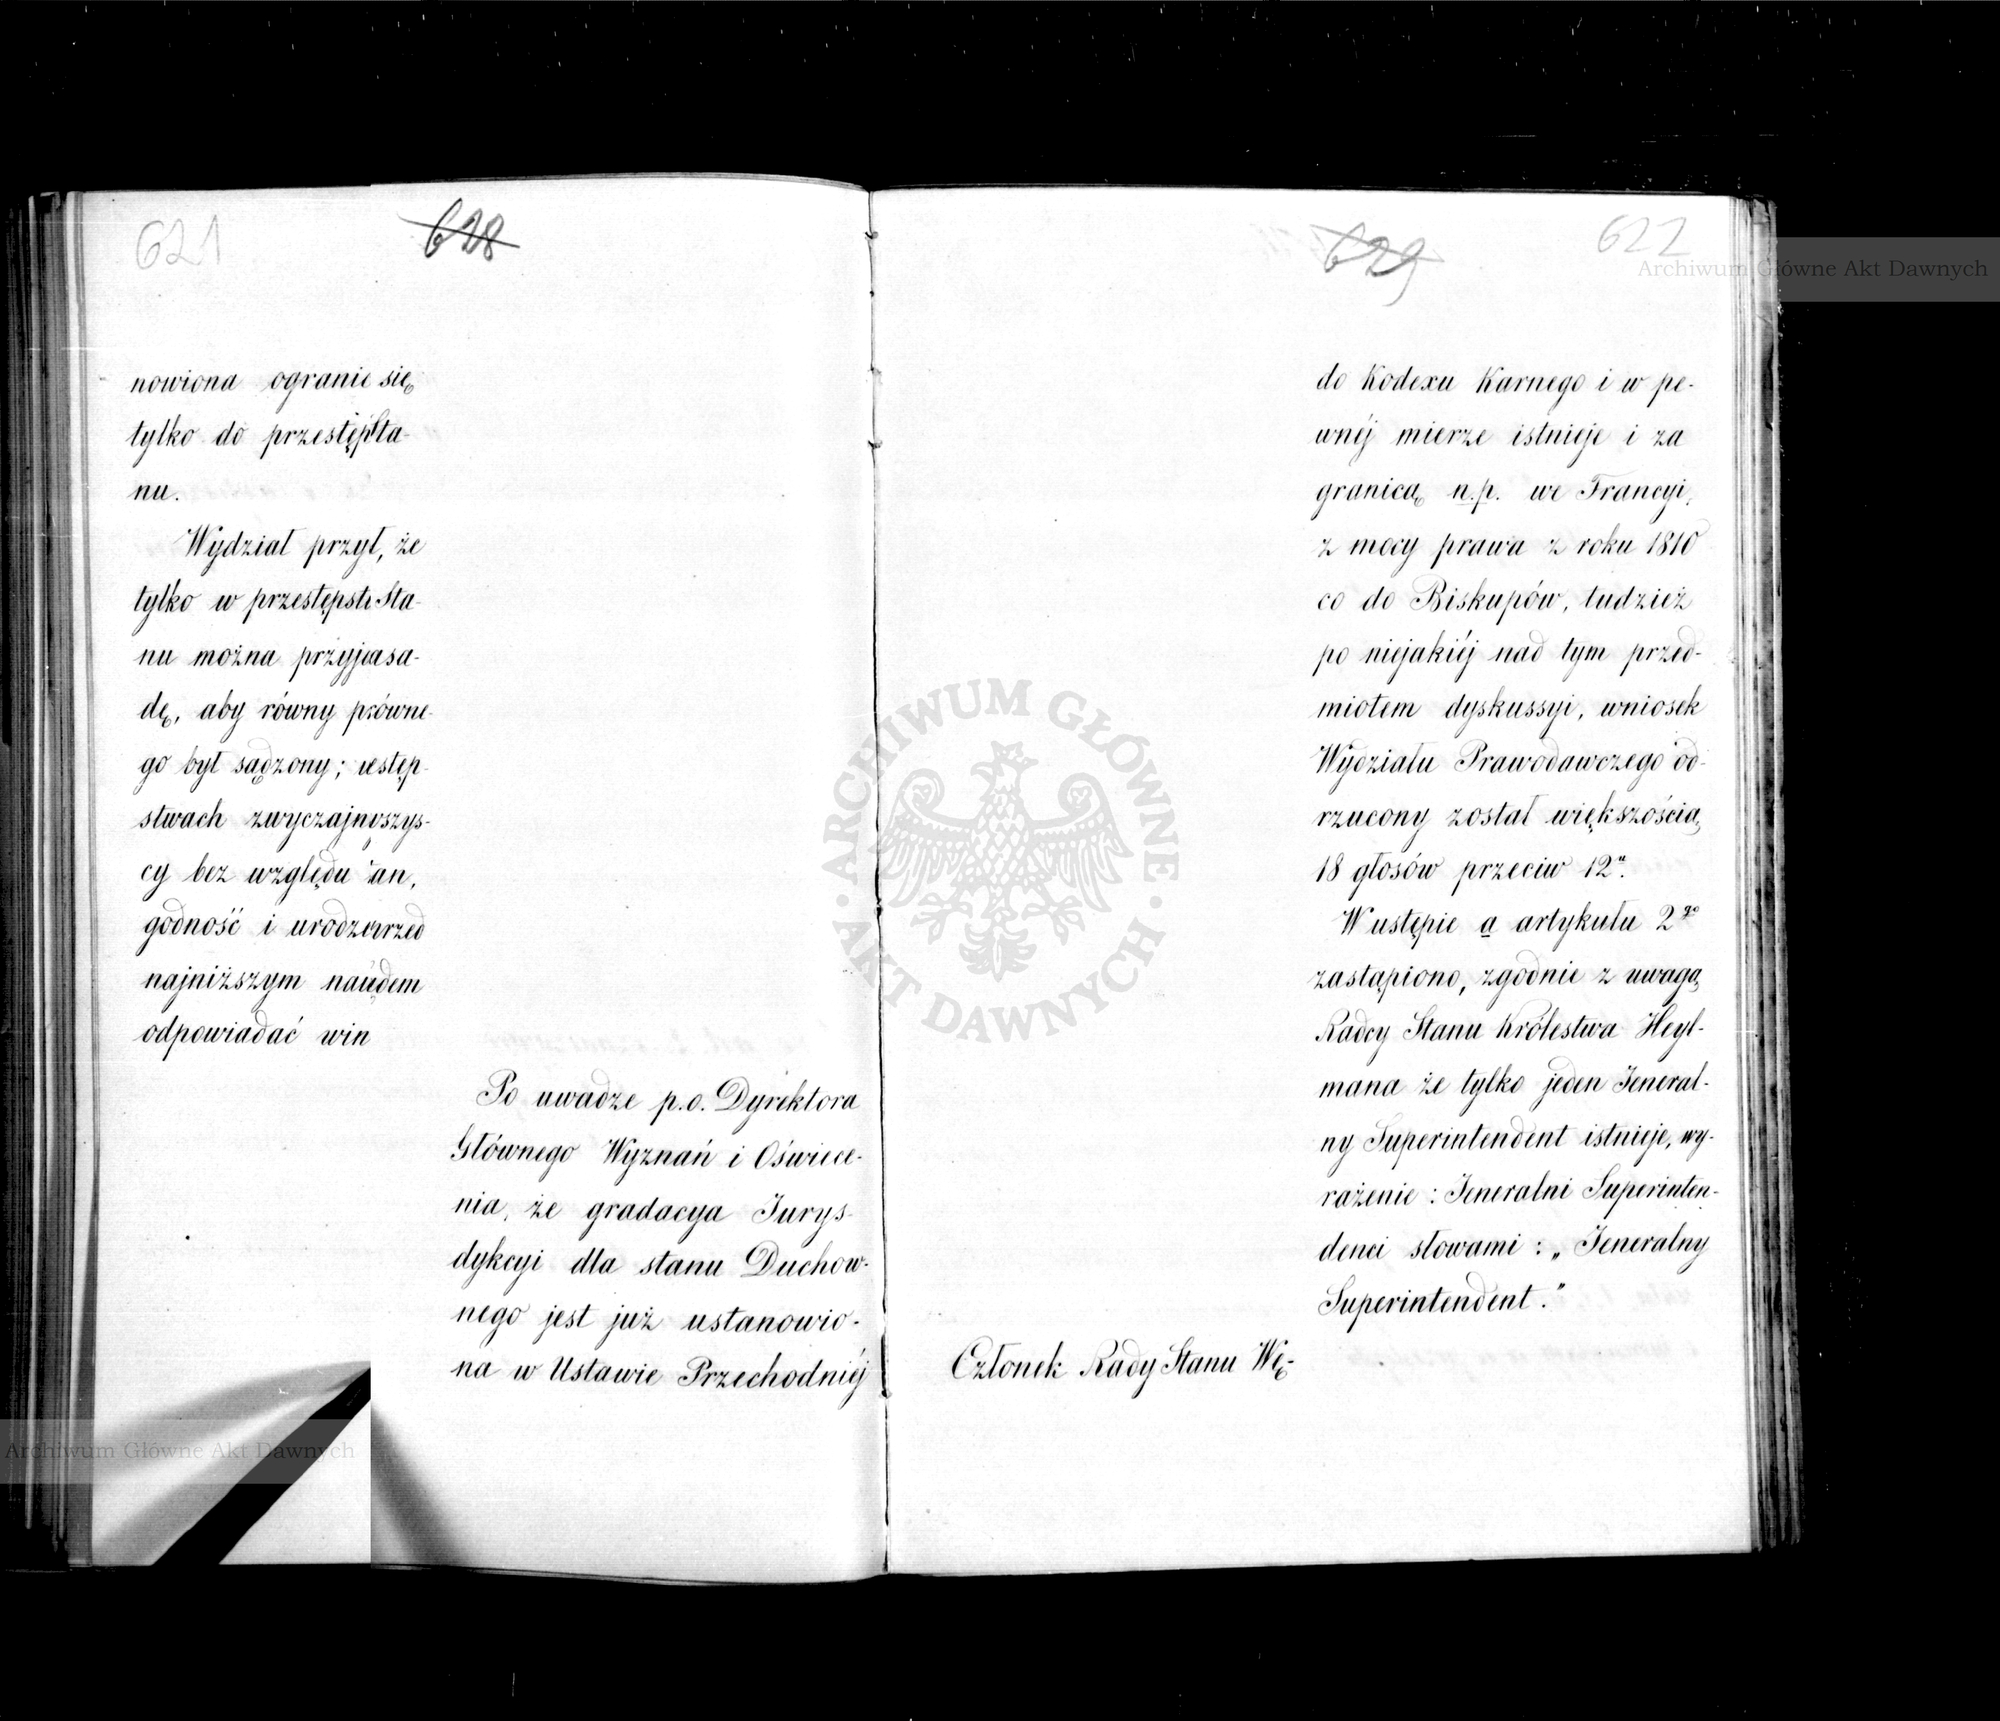 621
628
nowiona ogranic się
tylko do przestęp Sta-
nu.
Wydział przył, że
tylko w przestępst Sta-
nu można przyj asa-
dę, aby równy p równe-
go był sądzony; estęp-
stwach zwyczajn wszys-
cy bez względu an,
godność i urodze rzed
najniższym na dem
odpowiadać win
Po uwadze p.o. Dyrektora
Głównego Wyznań i Oświece-
nia, że gradacya Jurys-
dykcyi dla stanu Duchow-
nego jest już ustanowio-
na w Ustawie Przechodniéj
629
622
do Kodexu Karnego i w pe-
wnéj mierze istnieje i za
granicą n.p. we Francyi,
z mocy prawa z roku 1810
co do Biskupów, tudzież
po niejakiéj nad tym przed-
miotem dyskussyi, wniosek
Wydziału Prawodawczego od-
rzucony został większością
18 głosów przeciw 12u.
W ustępie a artykułu 2go
zastąpiono, zgodnie z uwagą
Radcy Stanu Królestwa Heyl-
mana że tylko jeden Jeneral-
ny Superintendent istnieje, wy-
rażenie: Jeneralni Superinten-
denci słowami: „Jeneralny
Superintendent."
Członek Rady Stanu Wę-
Archiwum Główne Akt Dawnych
ARCHIWUM GŁÓWNE · AKT DAWNYCH ·
Archiwum Główne Akt Dawnych